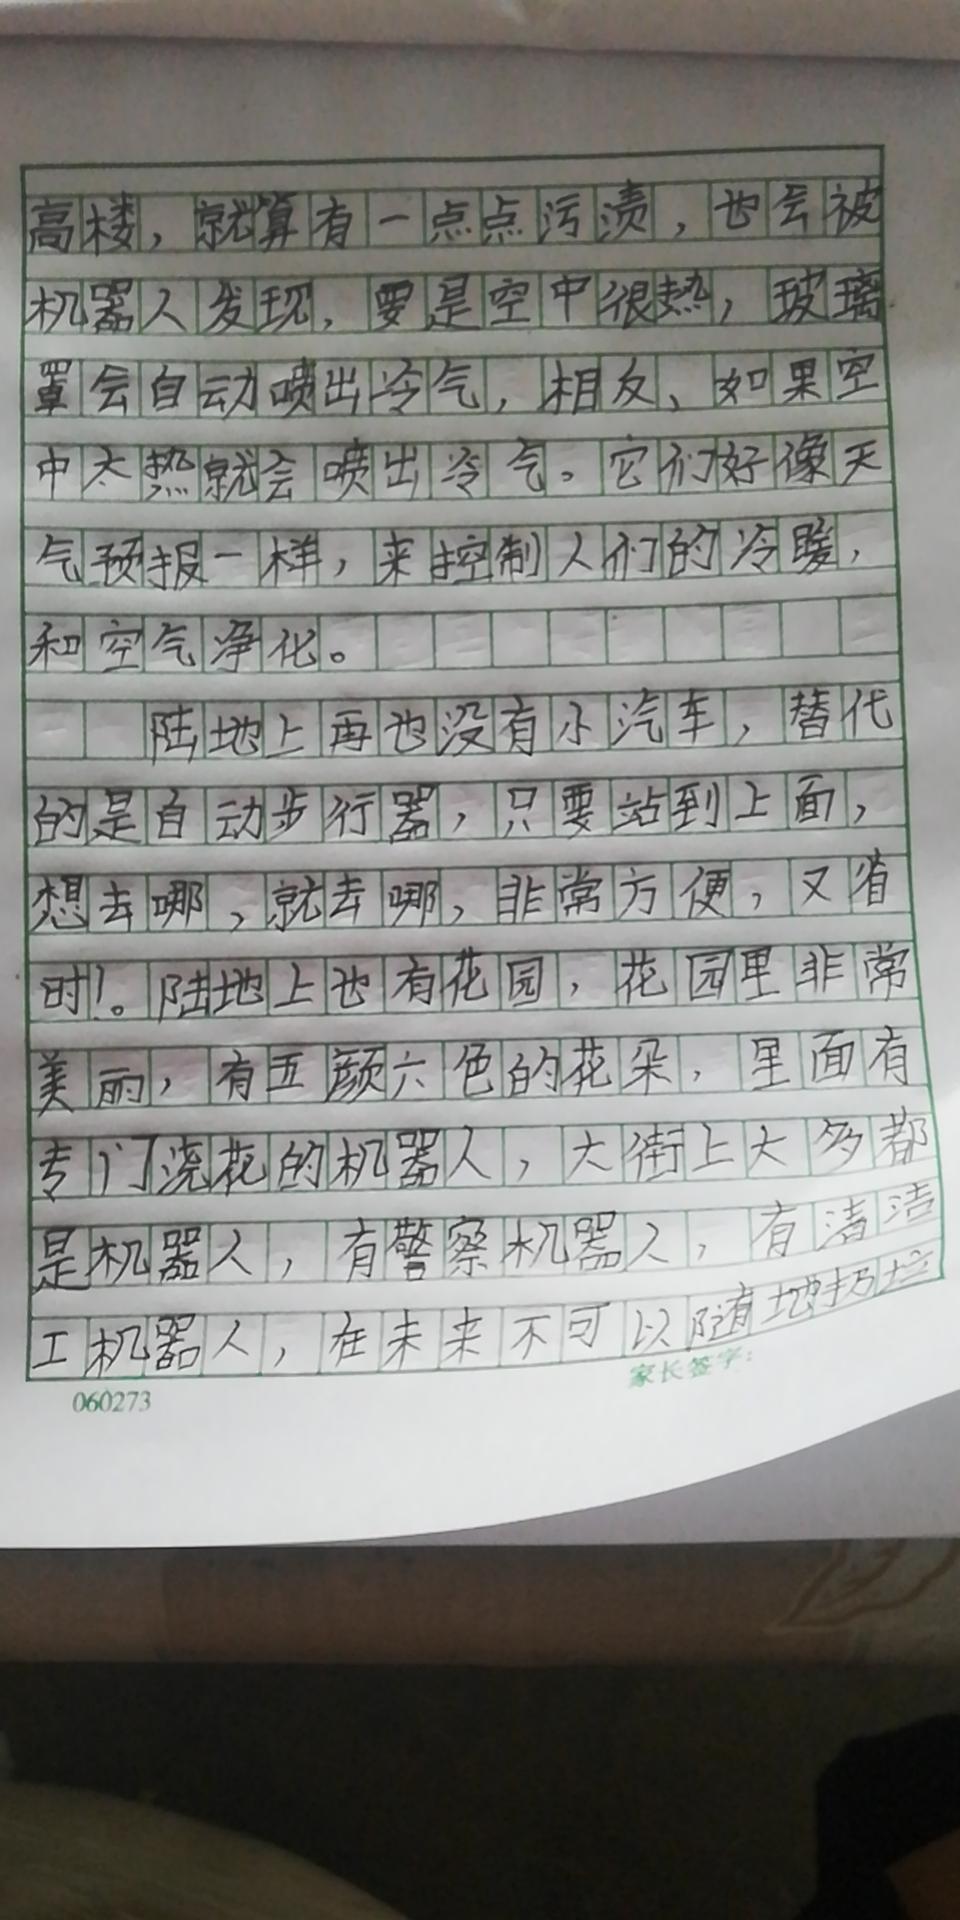 高楼，就算有一点点污渍，也会被
机器人发现，要是空中很热，玻璃
罩会自动喷出冷气，相反，如果空
中太热就会喷出冷气。它们好像天
气预报一样，来控制人们的冷暖，
和空气净化。
陆地上再也没有小汽车，替代
的是自动步行器，只要站到上面，
想去哪，就去哪，非常方便，又省
时！。陆地上也有花园，花园里非常
美丽，有五颜六色的花朵，里面有
专门浇花的机器人，大街上大多都
是机器人，有警察机器人，有清洁
工机器人，在未来不可以随地扔垃
家长签字：
060273